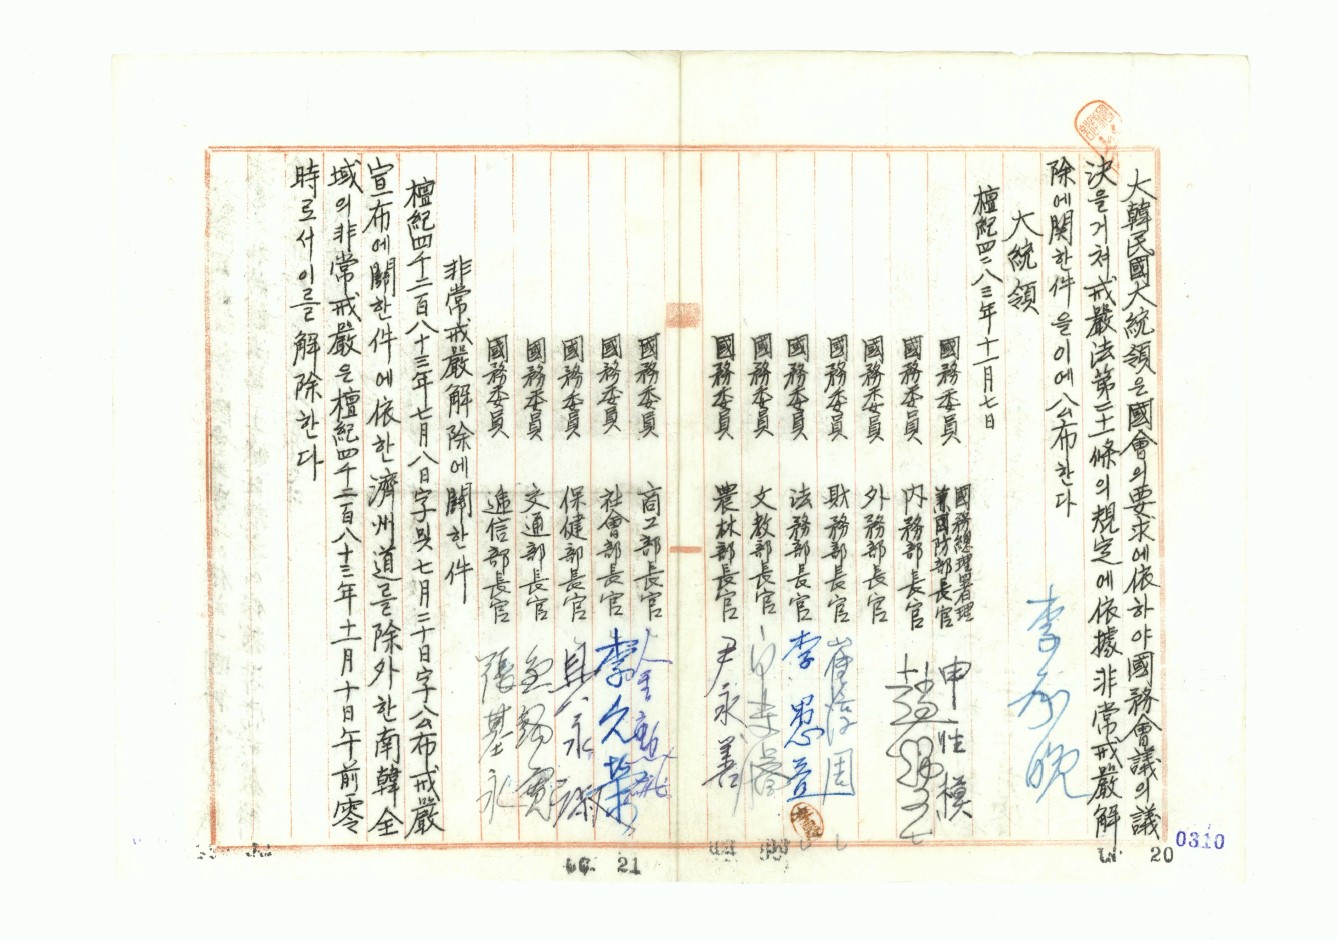 大韓民國大統領은國會의要求에依하야國務會議의議
決을거쳐戒嚴法第二十一條의規定에依據非常戒嚴解
除에関한件을이에公布한다
大統領 李承晩
檀紀四二八三年十一月七日
國務委員 國務總理署理兼國防部長官 申性模
國務委員 内務部長官 趙炳玉
國務委員 外務部長官
國務委員 財務部長官 崔淳周
國務委員 法務部長官 李愚益
國務委員 文敎部長官 白樂濬
國務委員 農林部長官 尹永善
國務委員 商工部長官 金勳
國務委員 社會部長官 李允榮
國務委員 保健部長官 具永淑
國務委員 交通部長官 金錫寬
國務委員 遞信部長官 張基永
非常戒嚴解除에關한件
檀紀四千二百八十三年七月八日字및七月二十日字公布戒嚴
宣布에關한件에依한濟州道를除外한南韓全
域의非常戒嚴은檀紀四千二百八十三年十一月十日午前零
時로서이를解除한다
0310
20
21